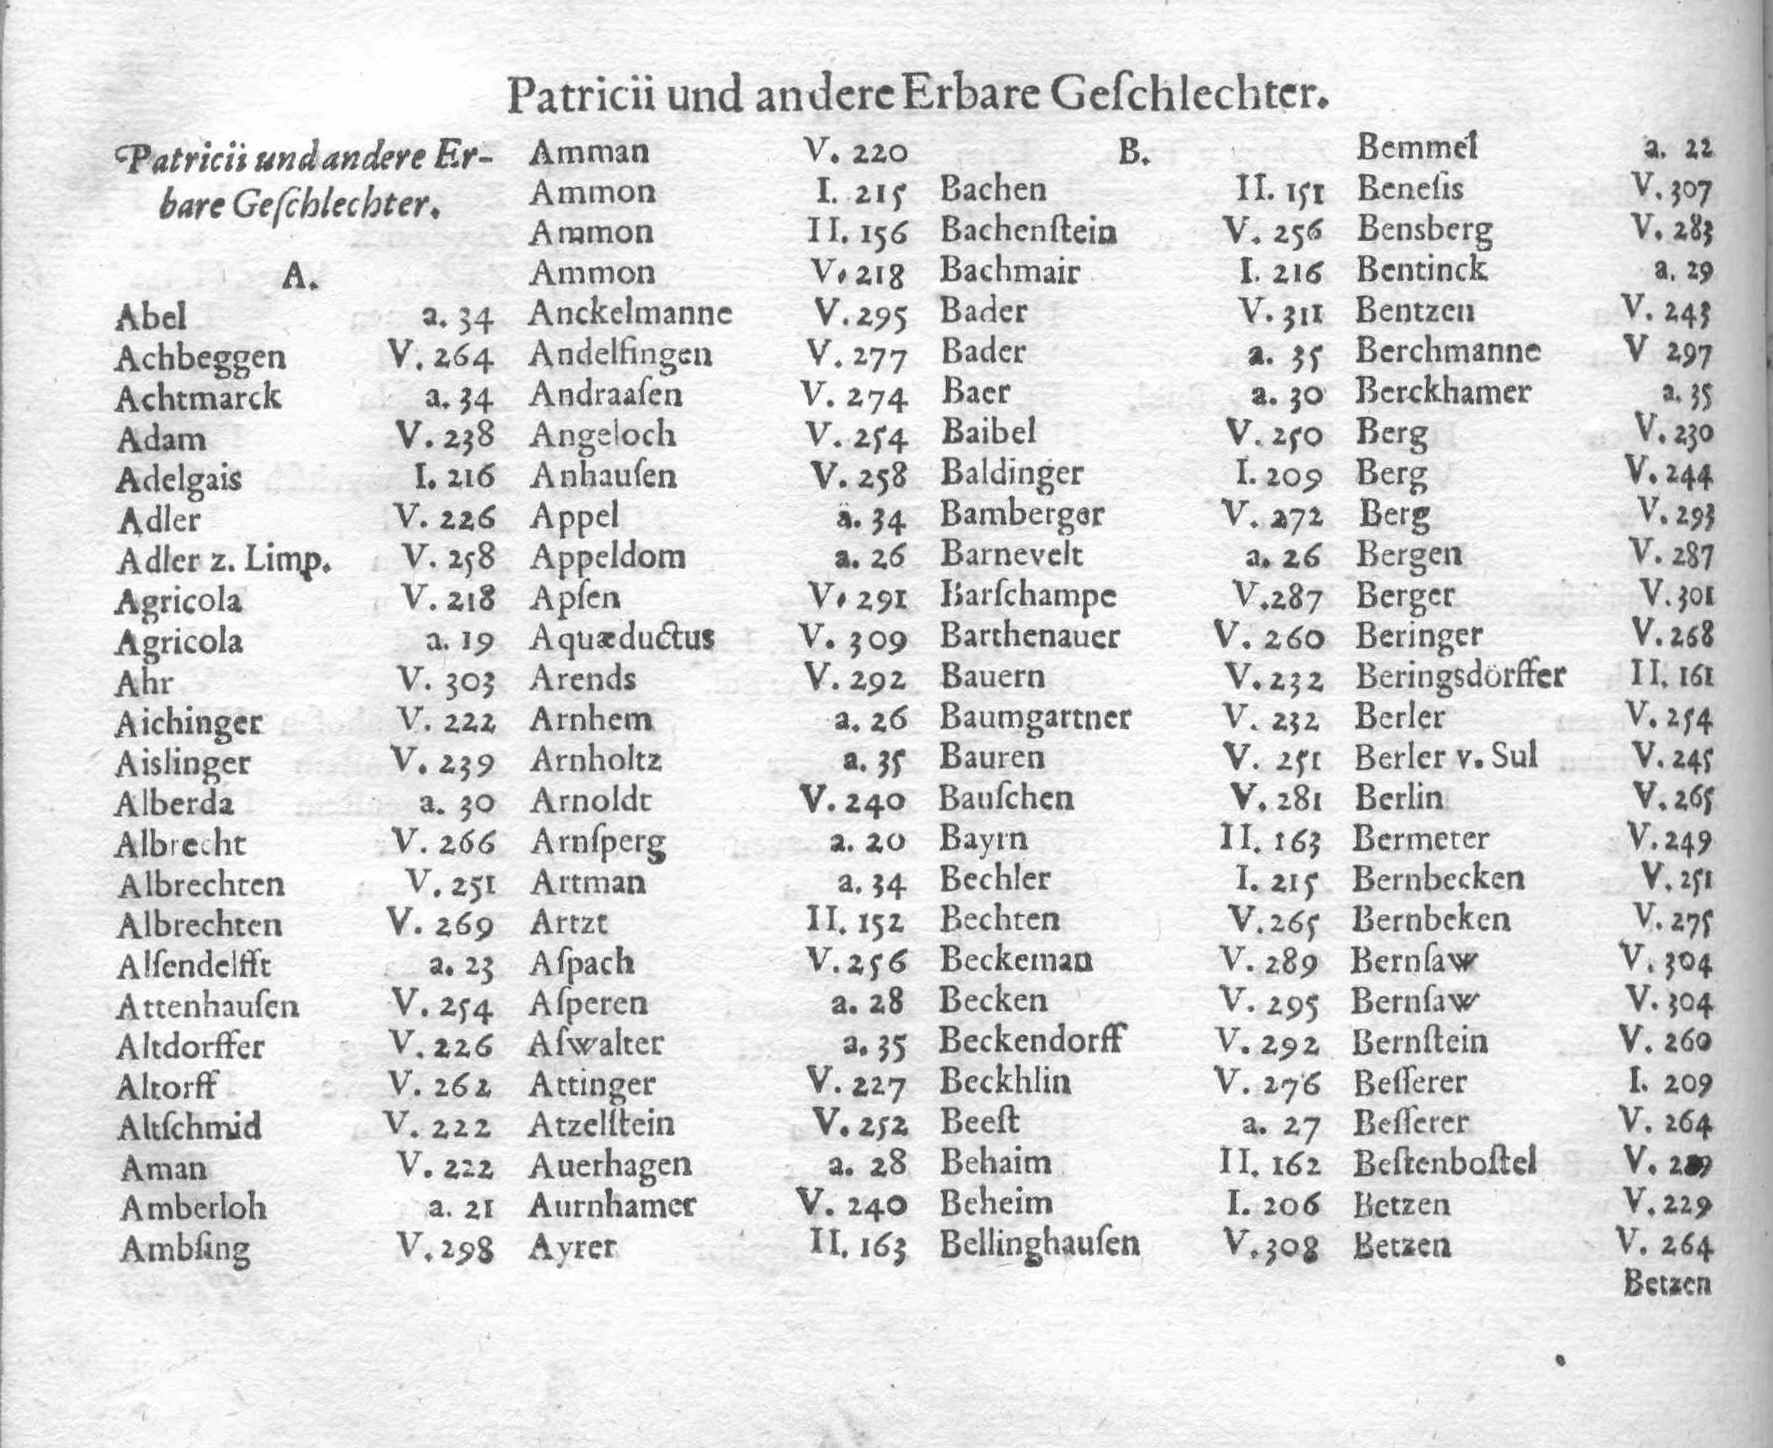 Patricii und andere Erbare Geſchlechter.
Patricii und andere Er-
bare Geſchlechter.
A.
Abel a. 34
Achbeggen V. 264
Achtmarck a. 34
Adam V. 238
Adelgais I. 216
Adler V. 226
Adler z. Limp. V. 258
Agricola V. 218
Agricola a. 19
Ahr V. 303
Aichinger V. 222
Aislinger V. 239
Alberda a. 30
Albrecht V. 266
Albrechten V. 251
Albrechten V. 269
Alſendelfft a. 23
Attenhauſen V. 254
Altdorffer V. 226
Altorff V. 262
Altſchmid V. 222
Aman V. 222
Amberloh a. 21
Ambſing V. 298
Amman V. 220
Ammon I. 215
Ammon II. 156
Ammon V. 218
Anckelmanne V. 295
Andelfingen V. 277
Andraaſen V. 274
Angeloch V. 254
Anhauſen V. 258
Appel a. 34
Appeldom a. 26
Apſen V. 291
Aquæductus V. 309
Arends V. 292
Arnhem a. 26
Arnholtz a. 35
Arnoldt V. 240
Arnſperg a. 20
Artman a. 34
Artzt II. 152
Aſpach V. 256
Aſperen a. 28
Aſwalter a. 35
Attinger V. 227
Atzelſtein V. 252
Auerhagen a. 28
Aurnhamer V. 240
Ayrer II. 163
B.
Bachen II. 151
Bachenſtein V. 256
Bachmair I. 216
Bader V. 311
Bader a. 35
Baer a. 30
Baibel V. 250
Baldinger I. 209
Bamberger V. 272
Barnevelt a. 26
Barſchampe V. 287
Barthenauer V. 260
Bauern V. 232
Baumgartner V. 232
Bauren V. 251
Bauſchen V. 281
Bayrn II. 163
Bechler I. 215
Bechten V. 265
Beckeman V. 289
Becken V. 295
Beckendorff V. 292
Beckhlin V. 276
Beeſt a. 27
Behaim II. 162
Beheim I. 206
Bellinghauſen V. 308
Bemmel a. 22
Beneſis V. 307
Bensberg V. 283
Bentinck a. 29
Bentzen V. 243
Berchmanne V 297
Berckhamer a. 35
Berg V. 230
Berg V. 244
Berg V. 293
Bergen V. 287
Berger V. 301
Beringer V. 268
Beringsdörffer II. 161
Berler V. 254
Berler v. Sul V. 245
Berlin V. 265
Bermeter V. 249
Bernbecken V. 251
Bernbeken V. 275
Bernſaw V. 304
Bernſaw V. 304
Bernſtein V. 260
Beſſerer I. 209
Beſſerer V. 264
Beſtenboſtel V.
Betzen V. 229
Betzen V. 264
Betzen